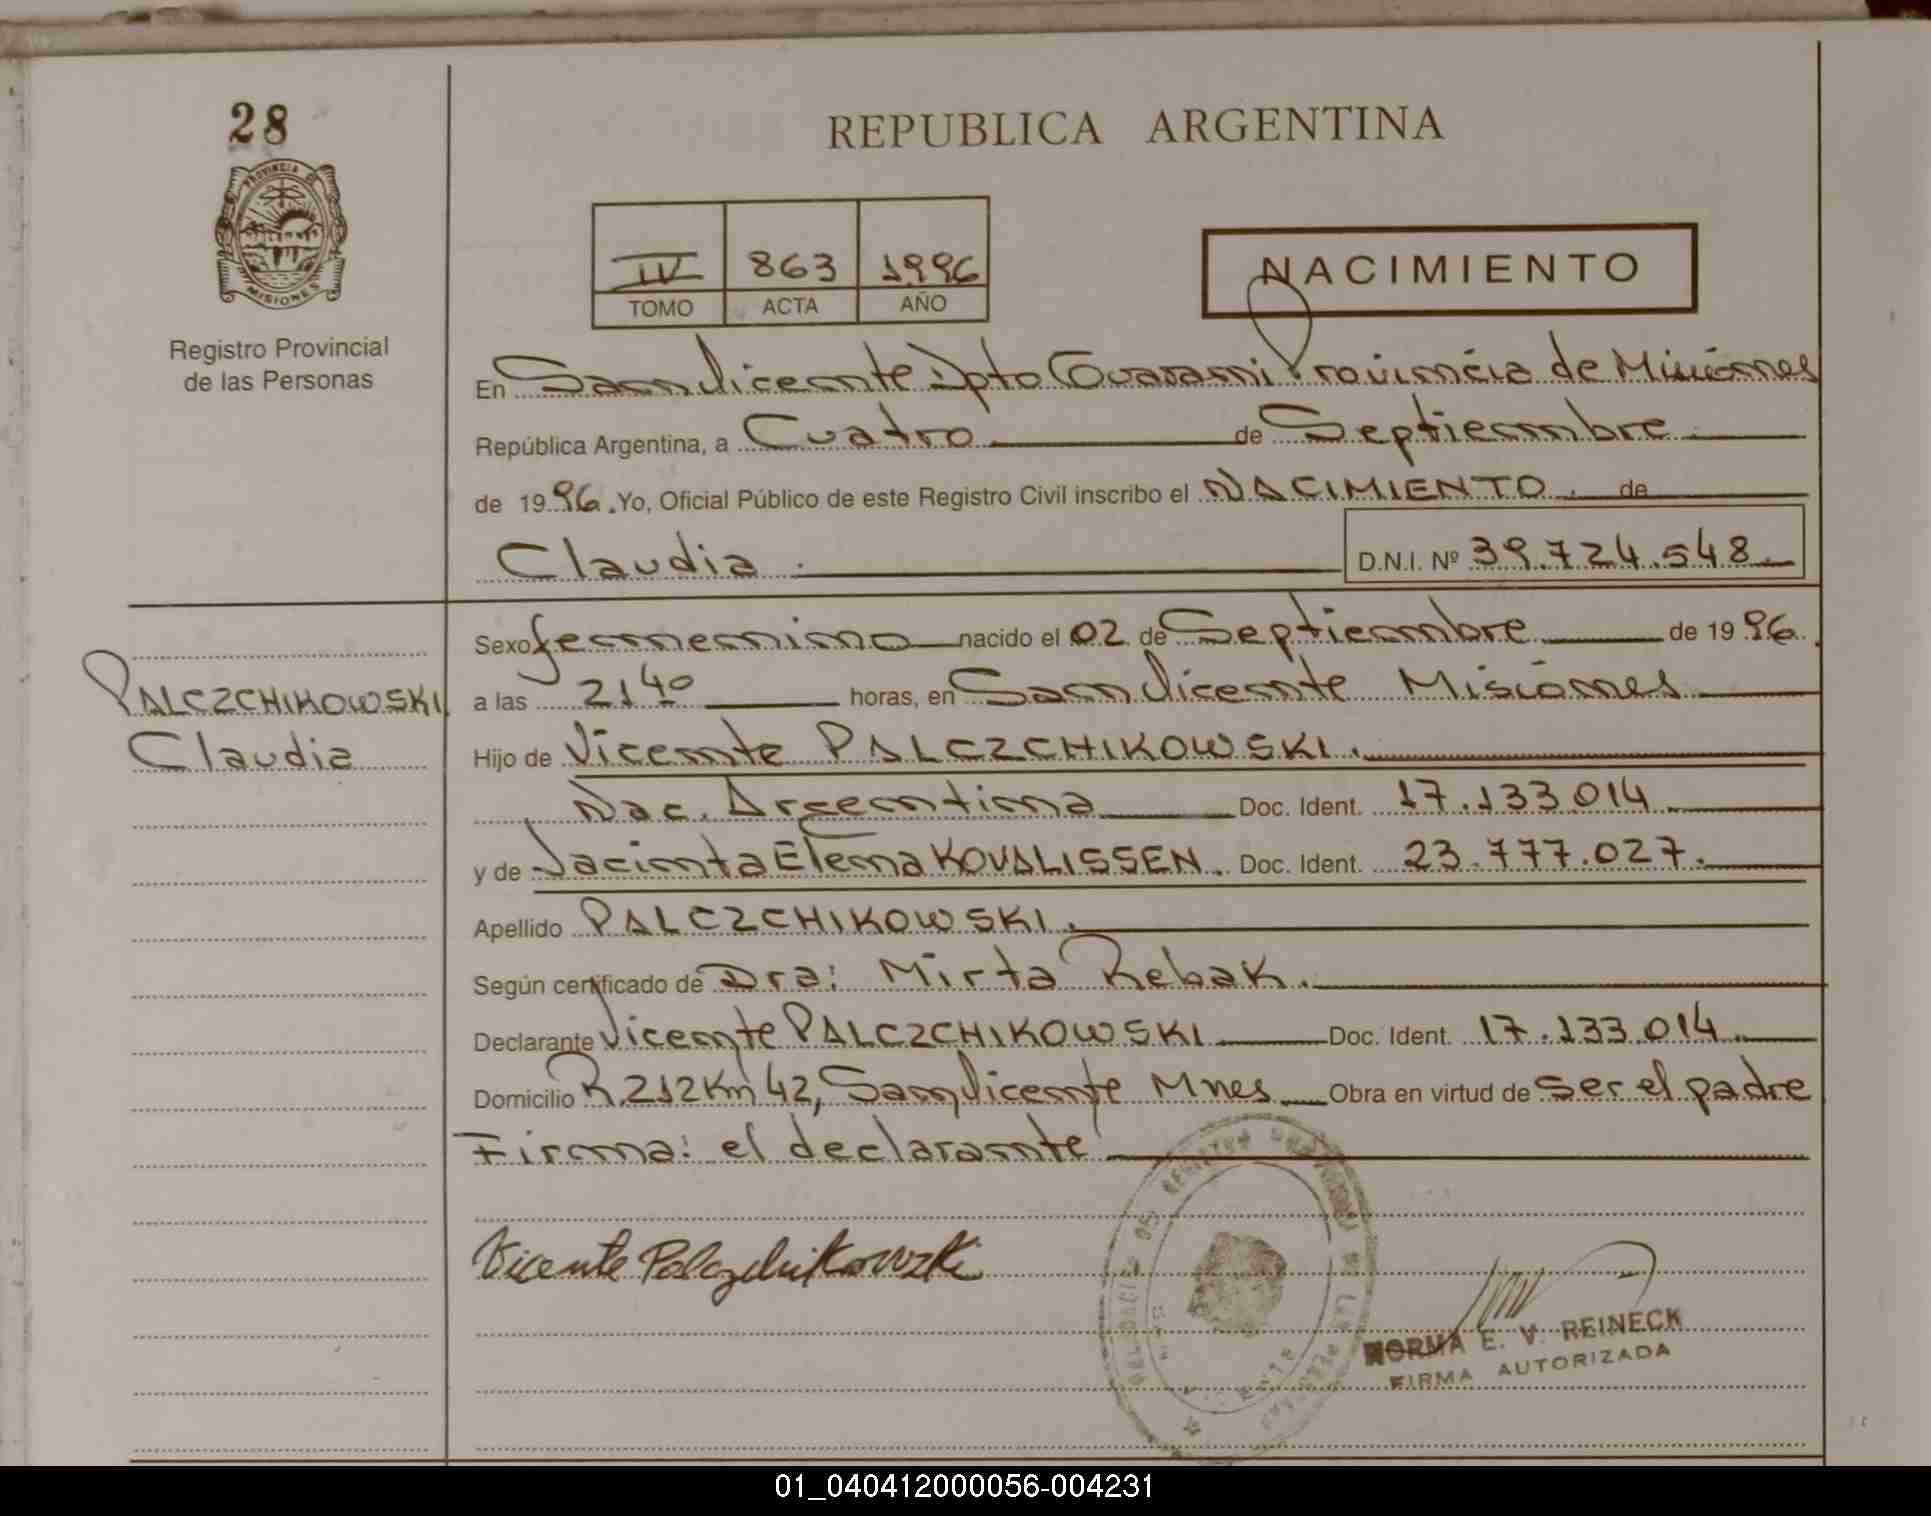 28
REPUBLICA ARGENTINA
PROVINCIA DE
MISIONES
Registro Provincial
de las Personas
IV 863 1996
TOMO ACTA AÑO
NACIMIENTO
En San Vicente Dpto Guarani Provincia de Misiones
República Argentina, a Cuatro de Septiembre
de 1996. Yo, Oficial Público de este Registro Civil inscribo el NACIMIENTO. de
Claudia. D.N.I. Nº 39.724.548.
Sexo femenino nacido el 02 de Septiembre de 1996.
PALCZCHIKOWSKI a las 21 40 horas, en San Vicente Misiones
Claudia Hijo de Vicente PALCZCHIKOWSKI.
Nac. Argentina Doc. Ident. 17.133.014
y de Jacinta Elena KOVALISSEN. Doc. Ident. 23.777.027.
Apellido PALCZCHIKOWSKI.
Según certificado de Dra: Mirta Rebak.
Declarante Vicente PALCZCHIKOWSKI Doc. Ident. 17.133.014.
Domicilio R.212 Km 42, San Vicente Mnes Obra en virtud de ser el padre
Firma: el declarante
Vicente Palczchikowzki
NORMA E. V. REINECK
FIRMA AUTORIZADA
01_040412000056-004231